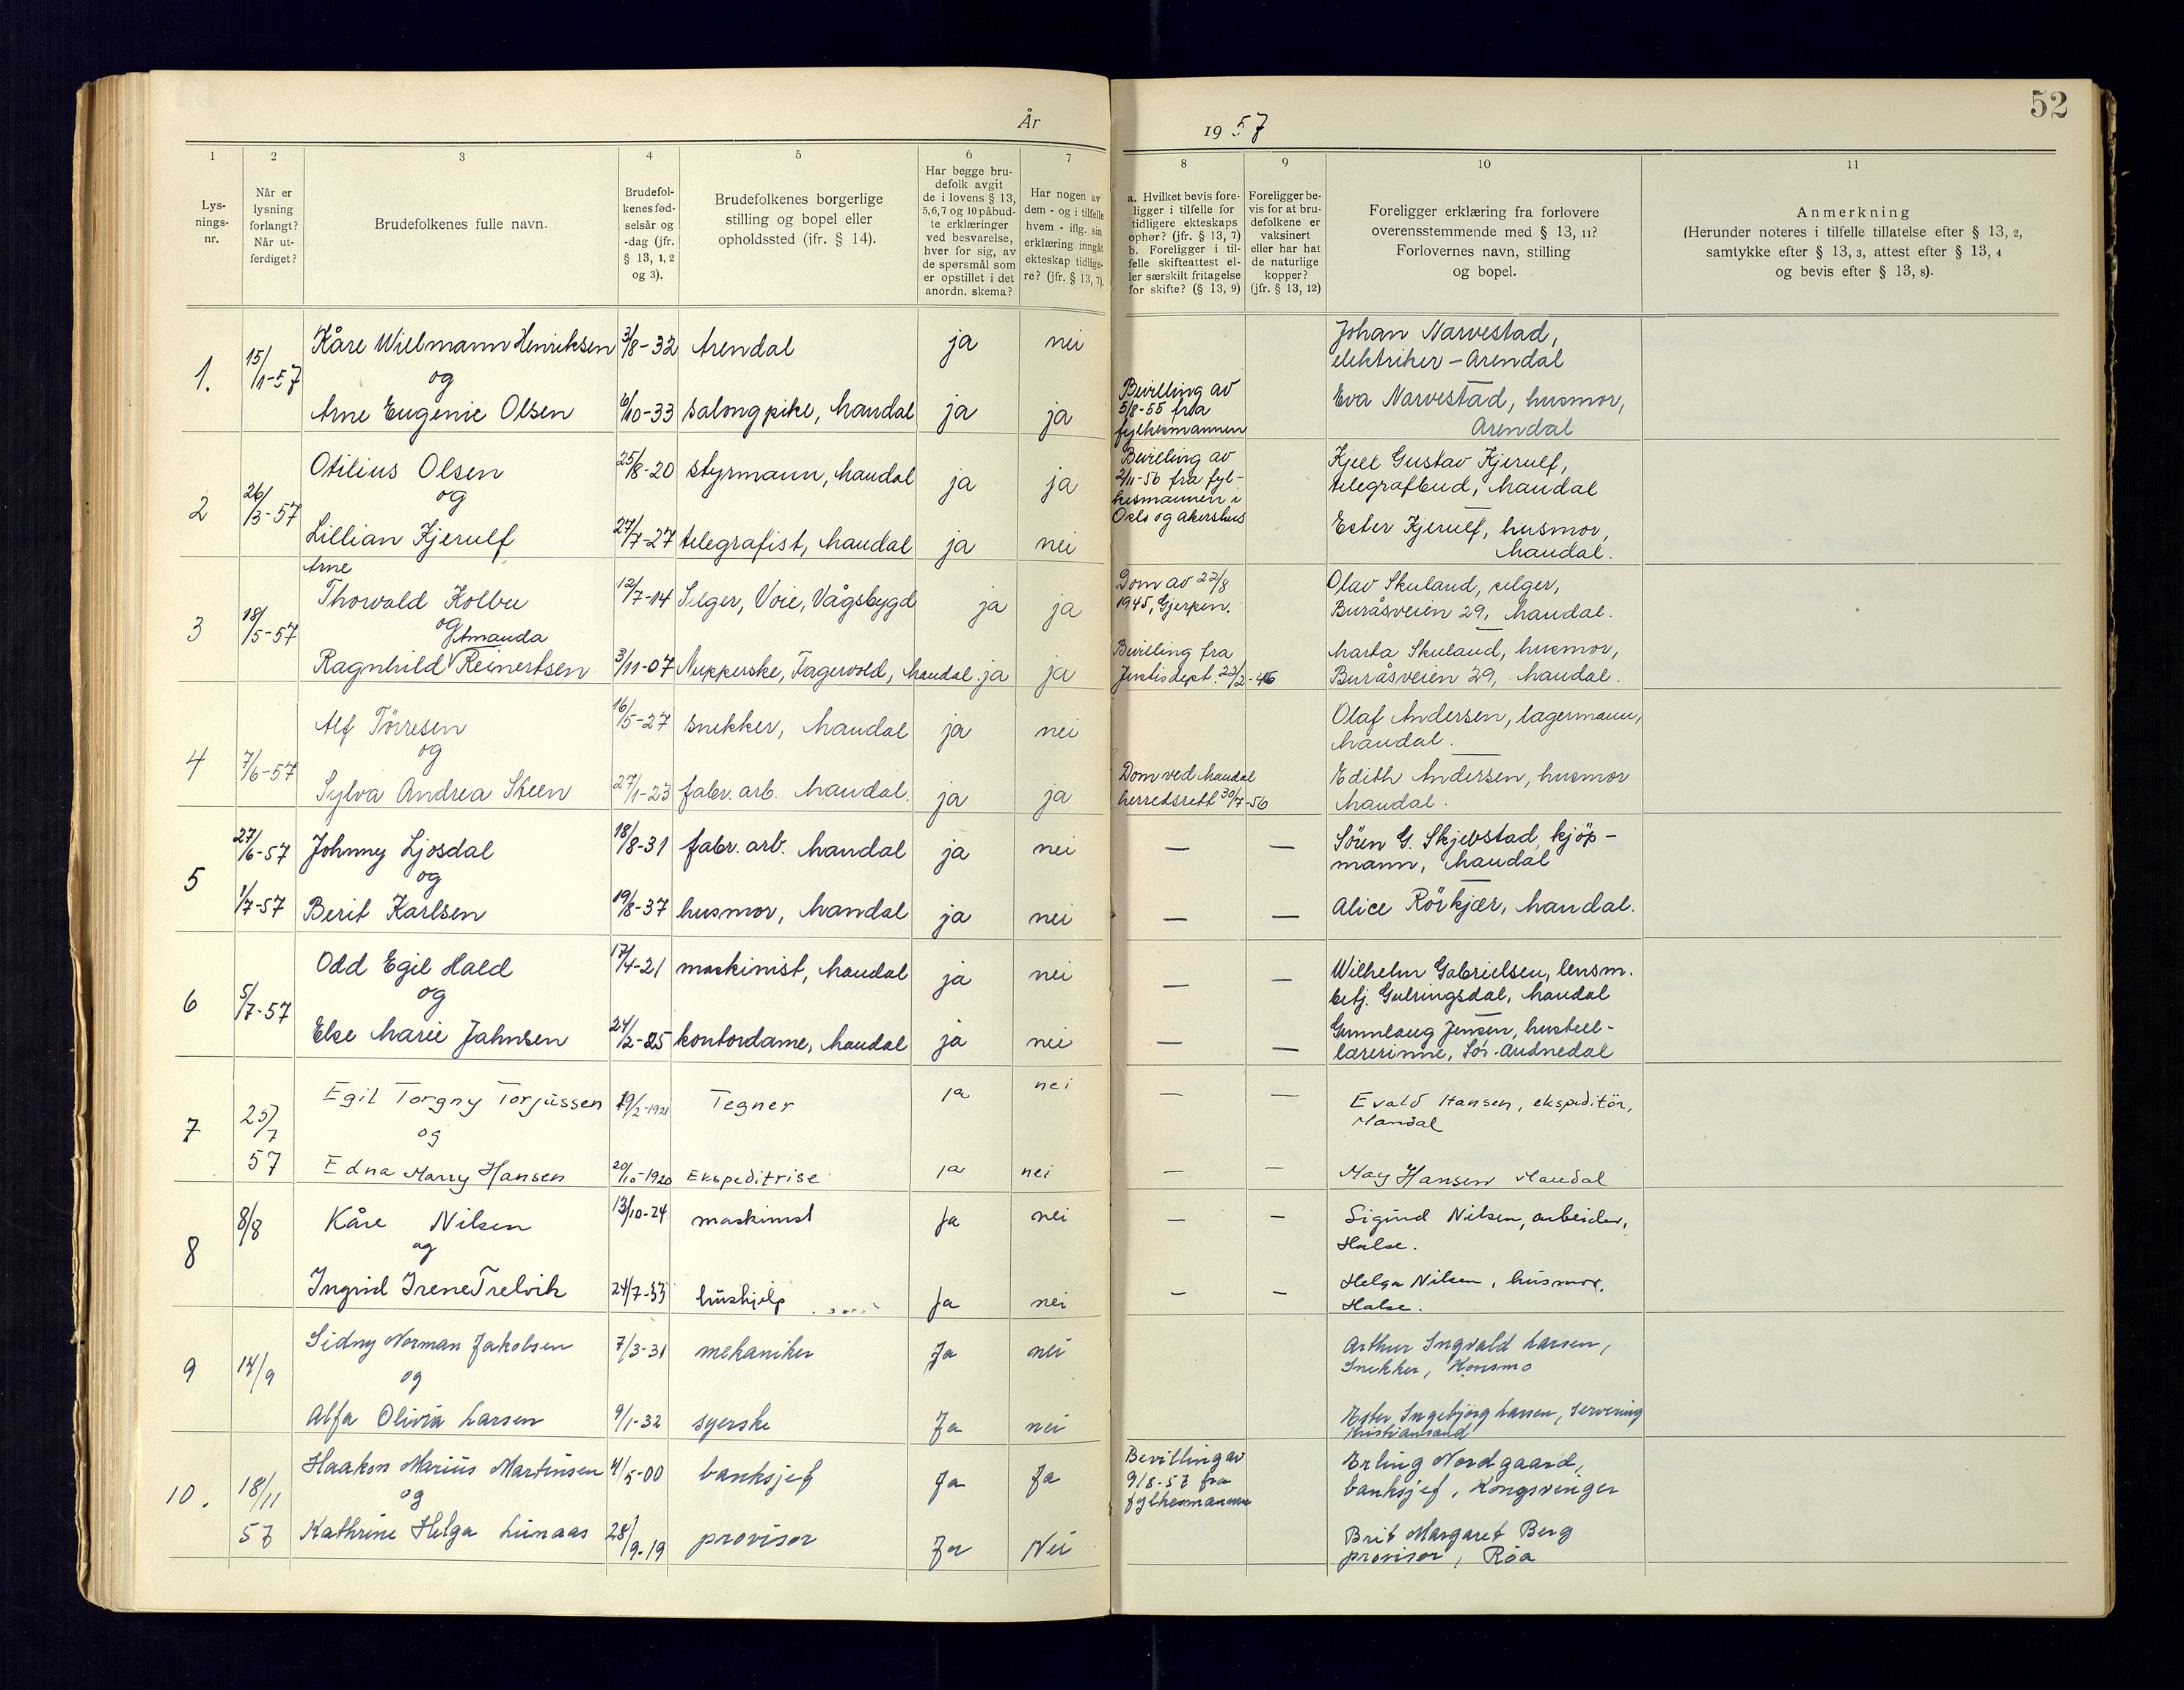 52
År
19 57
1
2
3
4
5
6
7
8
9
10
11
Lys-
nings-
nr.
Når er
lysning
forlangt?
Når ut-
ferdiget?
Brudefolkenes fulle navn.
Brudefol-
kenes fød-
selsår og
-dag (jfr.
§ 13, 1, 2
og 3).
Brudefolkenes borgerlige
stilling og bopel eller
opholdssted (jfr. § 14).
Har begge bru-
defolk avgit
de i lovens § 13,
5, 6, 7 og 10 påbud-
te erklæringer
ved besvarelse,
hver for sig, av
de spørsmål som
er opstillet i det
anordn. skema?
Har nogen av
dem - og i tilfelle
hvem - iflg. sin
erklæring inngått
ekteskap tidlige-
re? (jfr. § 13, 7).
a. Hvilket bevis fore-
ligger i tilfelle for
tidligere ekteskaps
ophør? (jfr. § 13, 7)
b. Foreligger i til-
felle skifteattest el-
ler særskilt fritagelse
for skifte? (§ 13, 9)
Foreligger be-
vis for at bru-
defolkene er
vaksinert
eller har hat
de naturlige
kopper?
(jfr. § 13, 12)
Foreligger erklæring fra forlovere
overensstemmende med § 13, 11?
Forlovernes navn, stilling
og bopel.
Anmerkning
(Herunder noteres i tilfelle tillatelse efter § 13, 2,
samtykke efter § 13, 3, attest efter § 13, 4
og bevis efter § 13, 8).
1.
15/1-57
Kåre Wielmann Henriksen
3/8-32
Arendal
ja
nei
Johan Narvestad,
elektriker - Arendal
og
Arne Eugenie Olsen
6/10-33
salongpike, Mandal
ja
ja
Bevilling av
5/8-55 fra
fylkesmannen
Eva Narvestad, husmor,
Arendal
2
26/3-57
Otilius Olsen
25/8-20
styrmann, Mandal
ja
ja
Bevilling av
2/11-56 fra fyl-
kesmannen i
Oslo og Akershus
Kjell Gustav Kjerulf,
telegrafbud, Mandal
og
Lillian Kjerulf
27/7-27
telegrafist, Mandal
ja
nei
Ester Kjerulf, husmor,
Mandal.
3
18/5-57
Arne
Thorvald Kolbu
12/7-14
Selger, Voie, Vågsbygd
ja
ja
Dom av 22/8
1945, Gjerpen.
Olav Skuland, selger,
Buråsveien 29, Mandal.
og
Amanda
Ragnhild Reinertsen
3/11-07
Nupperske, Fagervold, Mandal.
ja
ja
Bevilling fra
Justisdept. 22/2-46
Marta Skuland, husmor,
Buråsveien 29, Mandal.
4
7/6-57
Alf Tørresen
16/5-27
snekker, Mandal
ja
nei
Olaf Andersen, lagermann,
Mandal.
og
Sylva Andrea Steen
27/1-23
fabr. arb. Mandal.
ja
ja
Dom ved Mandal
herredsrett 30/7-56
Edith Andersen, husmor
Mandal.
5
27/6-57
1/7-57
Johnny Ljosdal
18/8-31
fabr. arb. Mandal
ja
nei
—
—
Sören G. Skjebstad, kjöp-
mann, Mandal
og
Berit Karlsen
19/8-37
husmor, Mandal
ja
nei
—
—
Alice Rörkjær, Mandal.
6
5/7-57
Odd Egil Hald
17/4-21
maskinist, Mandal
ja
nei
—
—
Wilhelm Gabrielsen, lensm.
betj. Gulringsdal, Mandal
og
Else Marie Jahnsen
24/2-25
kontordame, Mandal
ja
nei
—
—
Gunnlaug Jensen, hustell-
lærerinne, Sör-Audnedal
7
25/7
57
Egil Torgny Torjussen
19/2-1921
Tegner
ja
nei
—
—
Evald Hansen, ekspeditör,
Mandal
og
Edna Marry Hansen
20/10-1920
Ekspeditrise
ja
nei
—
—
May Hansen Mandal
8
8/8
Kåre Nilsen
13/10-24
maskinist
Ja
nei
—
—
Sigurd Nilsen, arbeider,
Halse.
og
Ingrid Irene Trelvik
24/7-33
hushjelp
Ja
nei
—
—
Helga Nilsen, husmor,
Halse.
9
14/9
Sidny Norman Jakobsen
7/3-31
mekaniker
Ja
nei
Arthur Ingvald Larsen,
Snekker, Konsmo
og
Alfa Olivia Larsen
9/1-32
syerske
Ja
nei
Ester Ingebjörg Larsen, Servering
Kristiansand
10.
18/11
57
Haakon Marius Martinsen
4/5-00
banksjef
Ja
Ja
Bevilling av
9/8-57 fra
fylkesmannen
Erling Nordgaard,
banksjef, Kongsvinger
og
Kathrine Helga Lunaas
28/9-19
provisor
Ja
Nei
Brit Margaret Berg
provisor, Roa